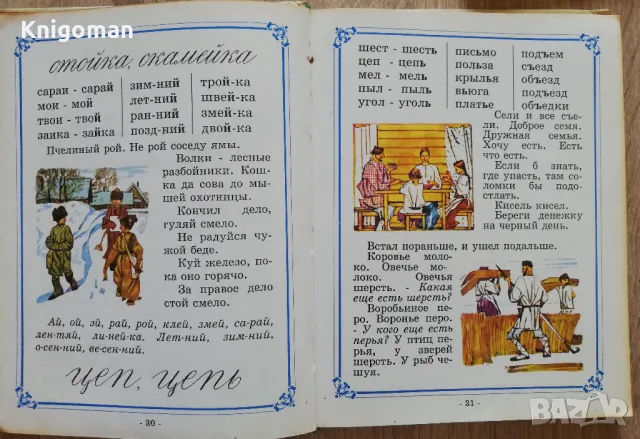 Knigoman
стойка, скамейка
сараи - сарай зим-ний трой-ка
мои - мой лет-ний швей-ка
твои - твой ран-ний змей-ка
заика - зайка позд-ний двой-ка
Пчелиный рой. Не рой соседу ямы.
Волки - лесные
разбойники. Кош-
ка да сова до мы-
шей охотницы.
Кончил дело,
гуляй смело.
Не радуйся чу-
жой беде.
Куй железо, по-
ка оно горячо.
За правое дело
стой смело.
Ай, ой, эй, рай, рой, клей, змей, са-рай,
лен-тяй, ли-ней-ка. Лет-ний, зим-ний,
о-сен-ний, ве-сен-ний.
цеп, цепь
- 30 -
шест - шесть письмо подъем
цеп - цепь польза съезд
мел - мель крылья объезд
пыл - пыль вьюга подъезд
угол - уголь платье объедки
Сели и все съе-
ли. Доброе семя.
Дружная семья.
Хочу есть. Есть
что есть.
Если б знать,
где упасть, там со-
ломки бы подо-
стлать.
Кисель кисел.
Береги денежку
на черный день.
Встал пораньше, и ушел подальше.
Коровье моло-
ко. Овечье мо-
локо. Овечья
шерсть. - Какая
еще есть шерсть?
Воробьиное пе-
ро. Воронье перо.
- У кого еще есть
перья? У птиц пе-
рья, у зверей
шерсть. У рыб че-
шуя.
- 31 -
BAZAR
bg